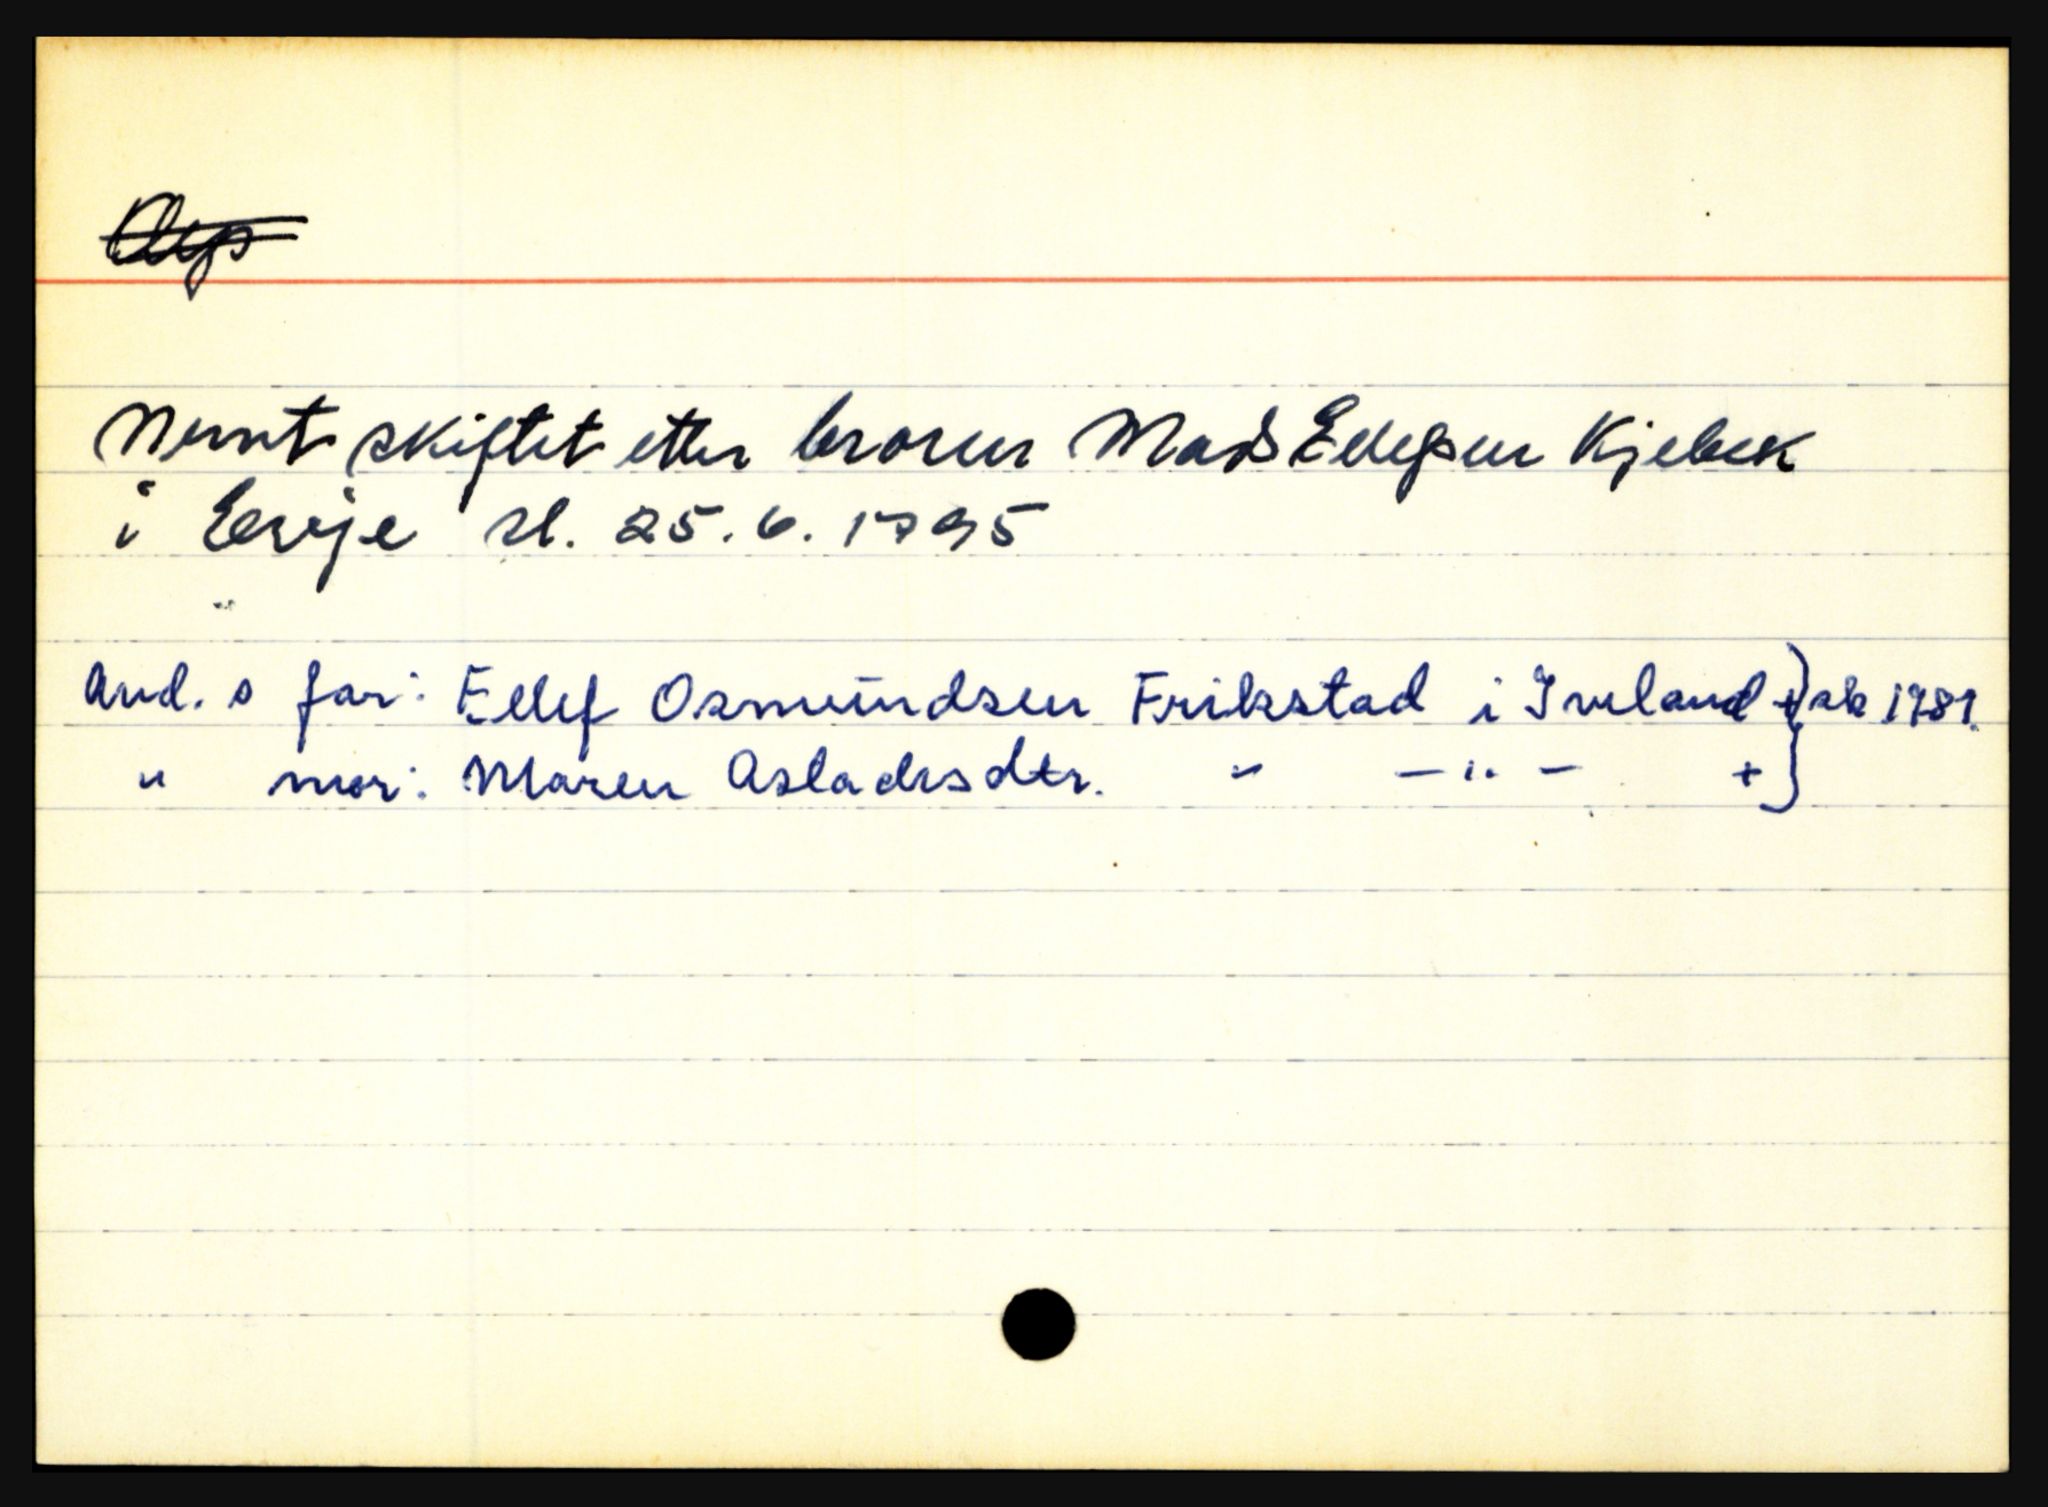 Nevnt skiftet etter broren Mads Ellefsen Kjebek
i Evje sl. 25.6.1795
And. s far: Ellef Osmundsen Frikstad i Iveland + } sk 1781.
" mor: Maren Asladsdtr. " - " - + }